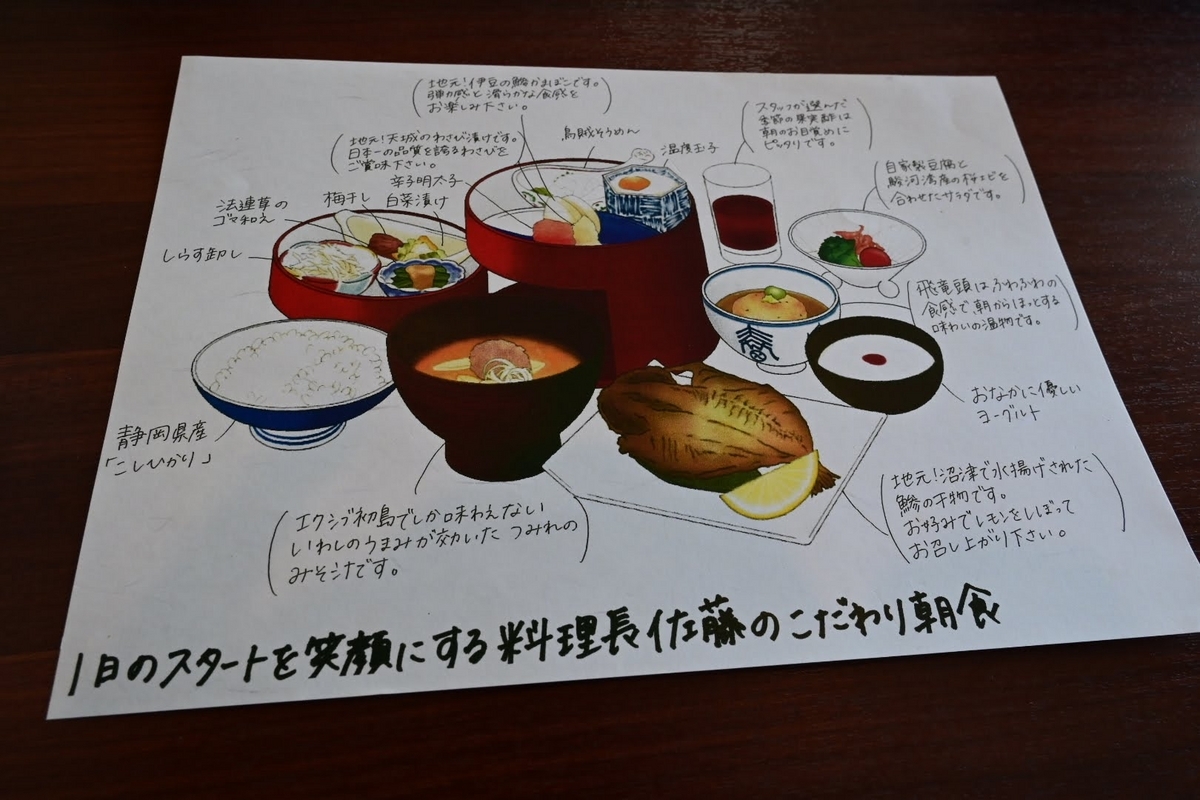 地元！伊豆の鯵かまぼこです。
弾力感と滑らかな食感を
お楽しみ下さい。
地元！天城のわさび漬けです。
日本一の品質を誇るわさびを
ご賞味下さい。
烏賊そうめん
温度玉子
スタッフが選んだ
季節の果実酢は
朝のお目覚めに
ピッタリです。
自家製豆腐と
駿河湾産の桜エビを
合わせたサラダです。
辛子明太子
白菜漬け
梅干し
法連草の
ゴマ和え
しらす卸し
飛竜頭はふわふわの
食感で、朝からほっとする
味わいの温物です。
おなかに優しい
ヨーグルト
静岡県産
「こしひかり」
エクシブ初島でしか味わえない
いわしのうまみが効いたつみれの
みそ汁です。
地元！沼津で水揚げされた
鯵の干物です。
お好みでレモンをしぼって
お召し上がり下さい。
1日のスタートを笑顔にする料理長佐藤のこだわり朝食